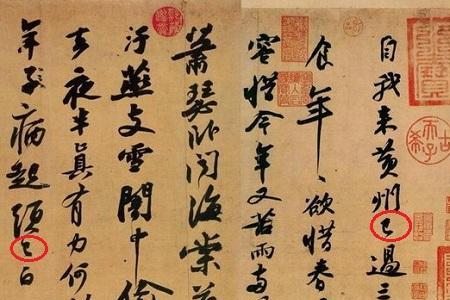 自我來黃州已過三
食年、欲惜春
容惜今年又苦雨兩
蕭瑟臥聞海棠花
汙燕支雪闇中偷
去夜半真有力何
年子病起頭已白